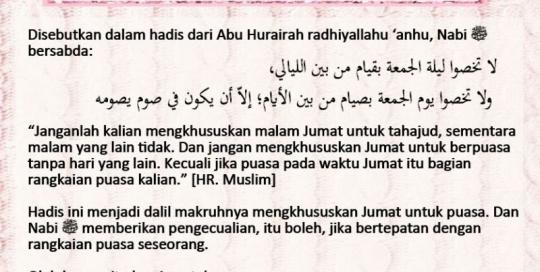 Disebutkan dalam hadis dari Abu Hurairah radhiyallahu ‘anhu, Nabi ﷺ
bersabda:
لا تخصوا ليلة الجمعة بقيام من بين الليالي،
ولا تخصوا يوم الجمعة بصيام من بين الأيام؛ إلاّ أن يكون في صوم يصومه
“Janganlah kalian mengkhususkan malam Jumat untuk tahajud, sementara
malam yang lain tidak. Dan jangan mengkhususkan Jumat untuk berpuasa
tanpa hari yang lain. Kecuali jika puasa pada waktu Jumat itu bagian
rangkaian puasa kalian.” [HR. Muslim]
Hadis ini menjadi dalil makruhnya mengkhususkan Jumat untuk puasa. Dan
Nabi ﷺ memberikan pengecualian, itu boleh, jika bertepatan dengan
rangkaian puasa seseorang.